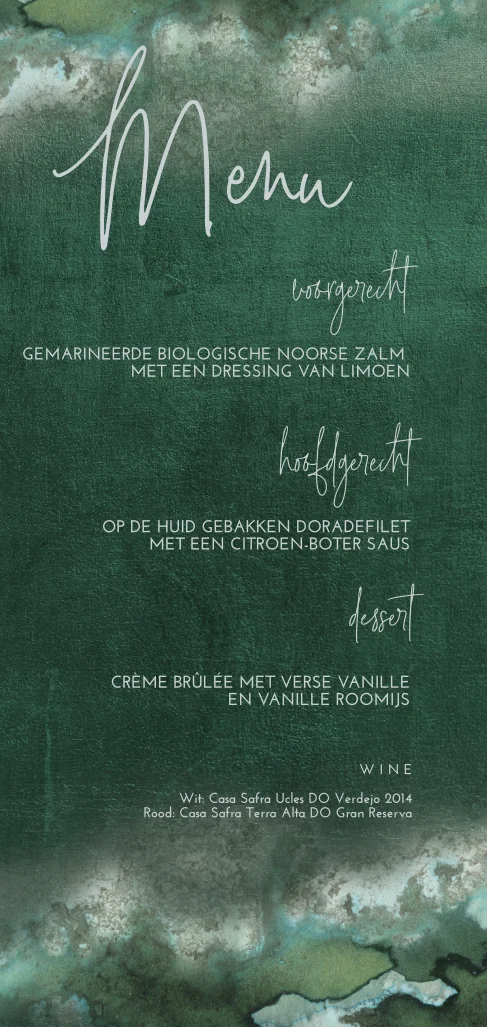 Menu
voorgerecht
GEMARINEERDE BIOLOGISCHE NOORSE ZALM
MET EEN DRESSING VAN LIMOEN
hoofdgerecht
OP DE HUID GEBAKKEN DORADEFILET
MET EEN CITROEN-BOTER SAUS
dessert
CRÈME BRÛLÉE MET VERSE VANILLE
EN VANILLE ROOMIJS
WINE
Wit: Casa Safra Ucles DO Verdejo 2014
Rood: Casa Safra Terra Alta DO Gran Reserva